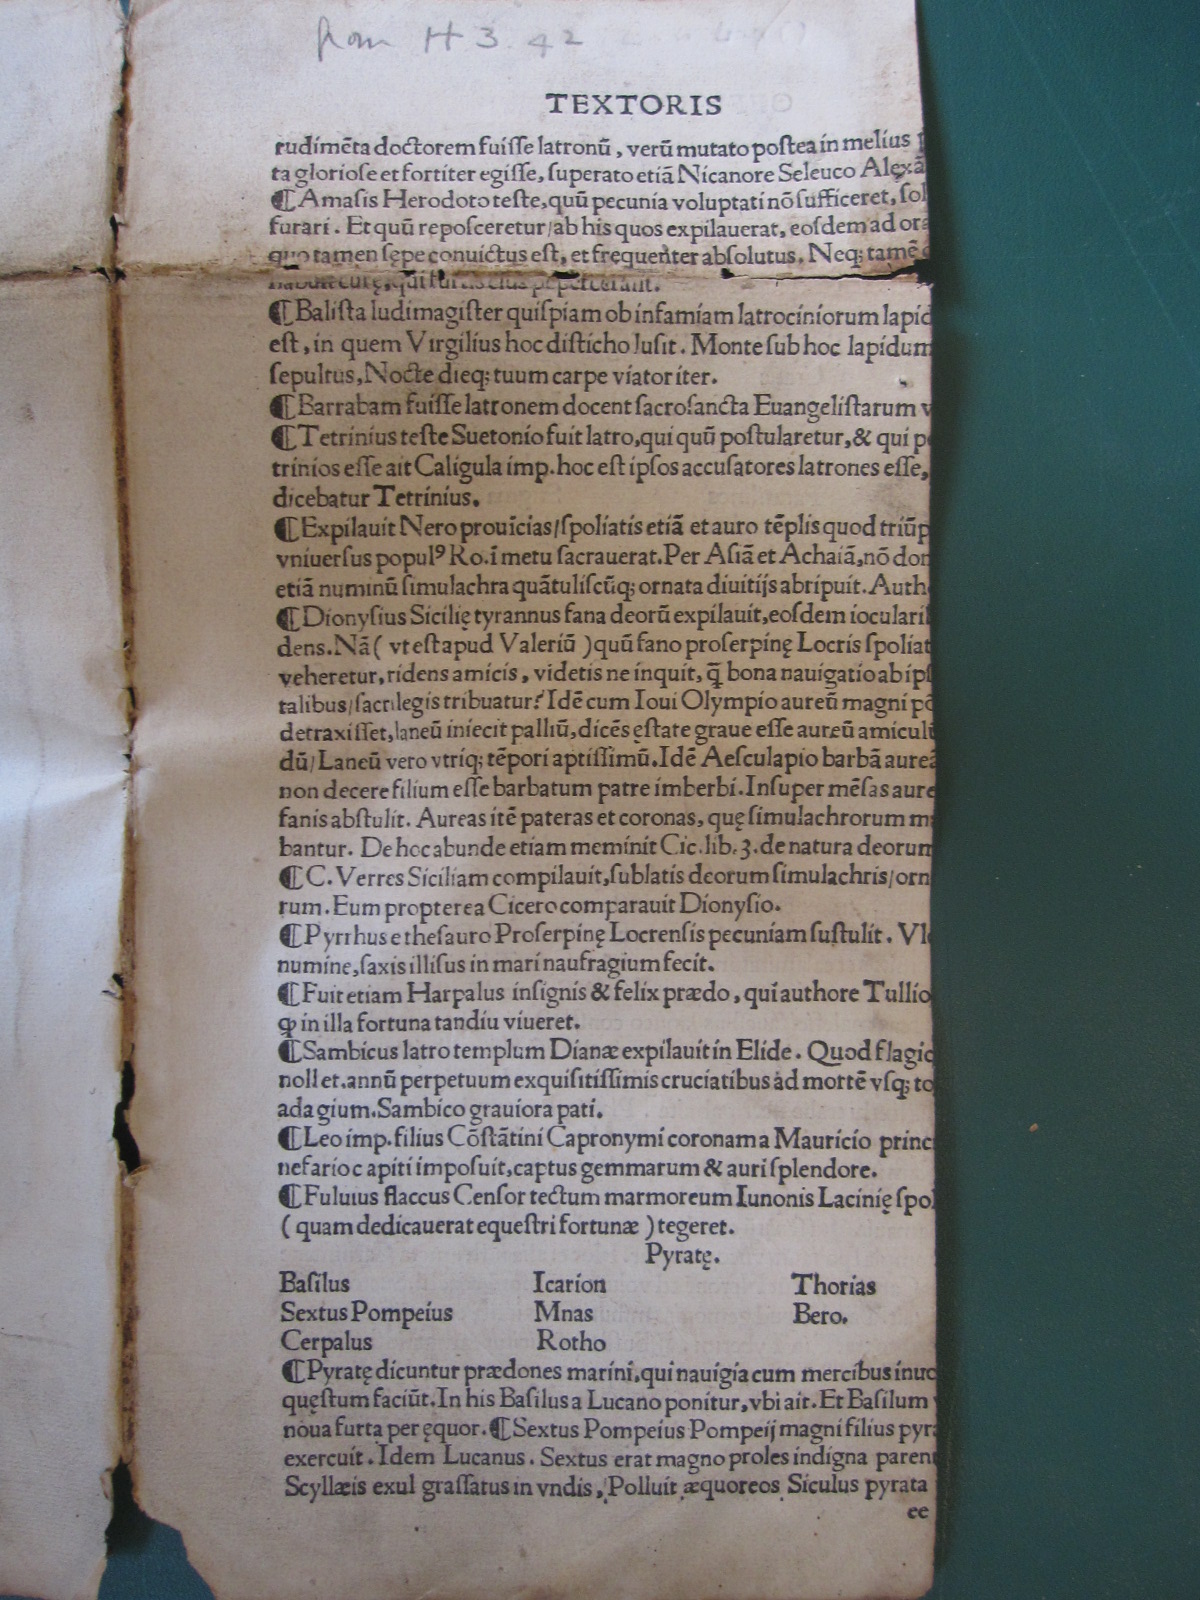 from H 3. 42
TEXTORIS
rudimēta doctorem fuiſſe latronū, verū mutato poſtea in melius
ta glorioſe et fortiter egiſſe, ſuperato etiā Nicanore Seleuco Alexā
¶Amaſis Herodoto teſte, quū pecunia voluptati nō ſufficeret, ſol
furari. Et quū repoſceretur/ab his quos expilauerat, eoſdem ad ora
quo tamen ſępe conuictus eſt, et frequenter abſolutus. Neq; tamē
pepercerant.
¶Baliſta ludimagiſter quiſpiam ob infamiam latrociniorum lapid
eſt, in quem Virgilius hoc diſticho luſit. Monte ſub hoc lapidum
ſepultus, Nocte dieq; tuum carpe viator iter.
¶Barrabam fuiſſe latronem docent ſacroſancta Euangeliſtarum v
¶Tetrinius teſte Suetonio fuit latro, qui quū poſtularetur, & qui p
trinios eſſe ait Caligula imp. hoc eſt ipſos accuſatores latrones eſſe,
dicebatur Tetrinius.
¶Expilauit Nero prouīcias/ſpoliatis etiā et auro tēplis quod triūp
vniuerſus populꝰ Ro. ī metu ſacrauerat. Per Aſiā et Achaiā, nō don
etiā numinū ſimulachra quātuliſcūq; ornata diuitijs abripuit. Auth
¶Dionyſius Sicilię tyrannus fana deorū expilauit, eoſdem ioculari
dens. Nā ( vt eſt apud Valeriū ) quū fano proſerpinę Locris ſpoliat
veheretur, ridens amicis, videtis ne inquit, q̄ bona nauigatio ab ipſ
talibus/ſacrilegis tribuatur? Idē cum Ioui Olympio aureū magni pō
detraxiſſet, laneū iniecit palliū, dicēs ęſtate graue eſſe aureū amiculū
dū/Laneū vero vtriq; tēpori aptiſſimū. Idē Aeſculapio barbā aureā
non decere filium eſſe barbatum patre imberbi. Inſuper mēſas aure
fanis abſtulit. Aureas itē pateras et coronas, quę ſimulachrorum m
bantur. De hoc abunde etiam meminit Cic. lib. 3. de natura deorum
¶C. Verres Siciliam compilauit, ſublatis deorum ſimulachris/orn
rum. Eum propterea Cicero comparauit Dionyſio.
¶Pyrrhus e theſauro Proſerpinę Locrenſis pecuniam ſuſtulit. Vl
numine, ſaxis illiſus in mari naufragium fecit.
¶Fuit etiam Harpalus inſignis & felix prædo, qui authore Tullio
ꝙ in illa fortuna tandiu viueret.
¶Sambicus latro templum Dianæ expilauit in Elide. Quod flagic
nollet, annū perpetuum exquiſitiſſimis cruciatibus ad mortē vſq; to
adagium. Sambico grauiora pati.
¶Leo imp. filius Cōſtātini Capronymi coronam a Mauricio princ
nefario capiti impoſuit, captus gemmarum & auri ſplendore.
¶Fuluius flaccus Cenſor tectum marmoreum Iunonis Lacinię ſpol
( quam dedicauerat equeſtri fortunæ ) tegeret.
Pyratę.
Baſilus Icarion Thorias
Sextus Pompeius Mnas Bero.
Cerpalus Rotho
¶Pyratę dicuntur prædones marini, qui nauigia cum mercibus inuc
quęſtum faciūt. In his Baſilus a Lucano ponitur, vbi ait. Et Baſilum
noua furta per ęquor. ¶Sextus Pompeius Pompeij magni filius pyr
exercuit. Idem Lucanus. Sextus erat magno proles indigna paren
Scyllæis exul graſſatus in vndis, Polluit æquoreos Siculus pyrata
ee